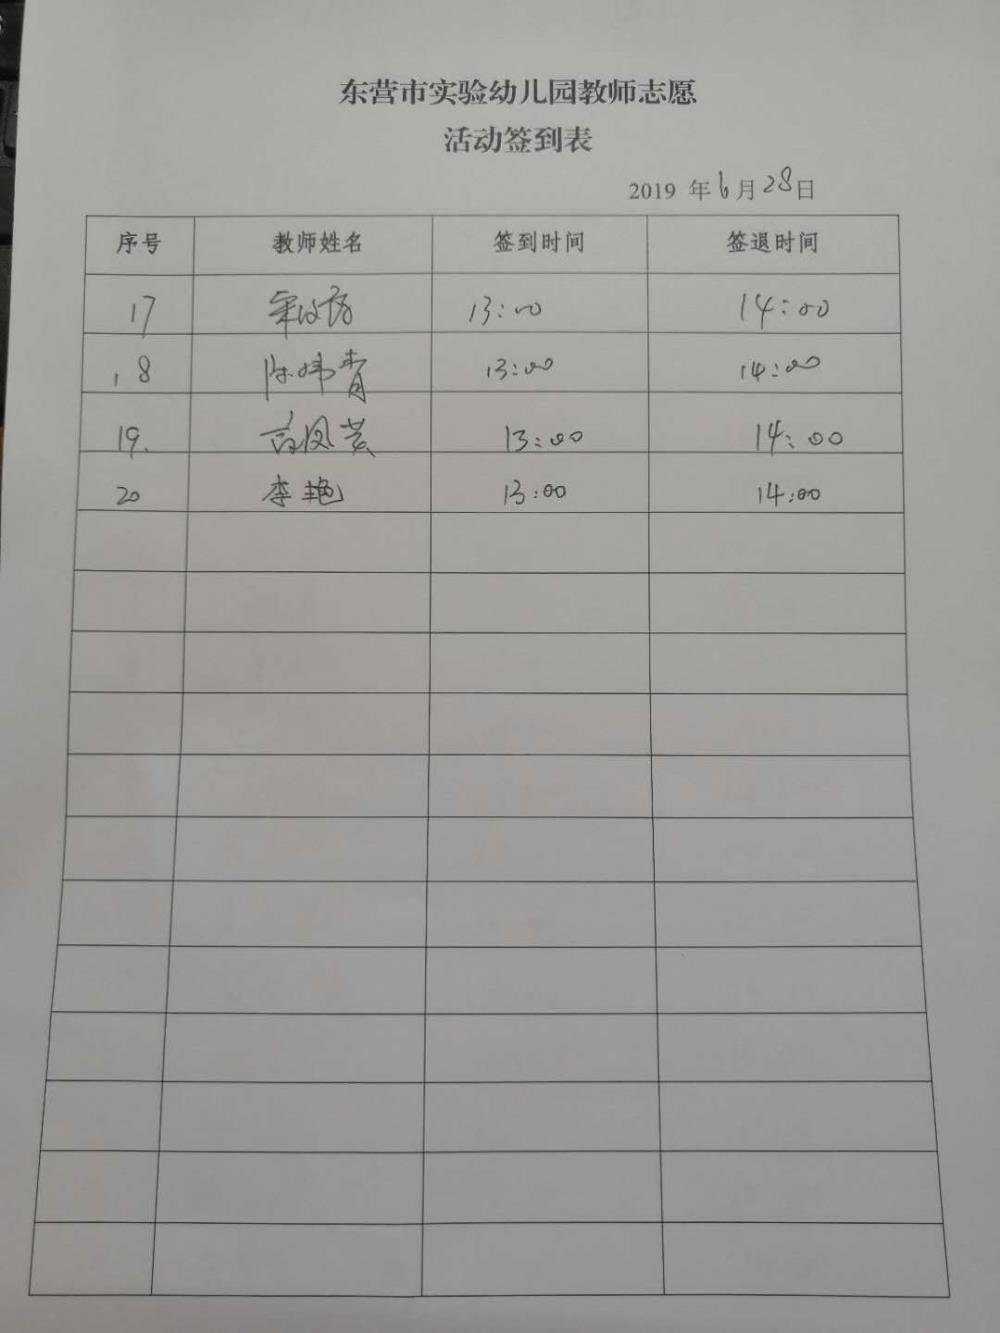 东营市实验幼儿园教师志愿
活动签到表
2019 年 6 月 28 日
序号 教师姓名 签到时间 签退时间
17 13:00 14:00
18 陈炜青 13:00 14:00
19. 高凤芸 13:00 14:00
20 李艳 13:00 14:00